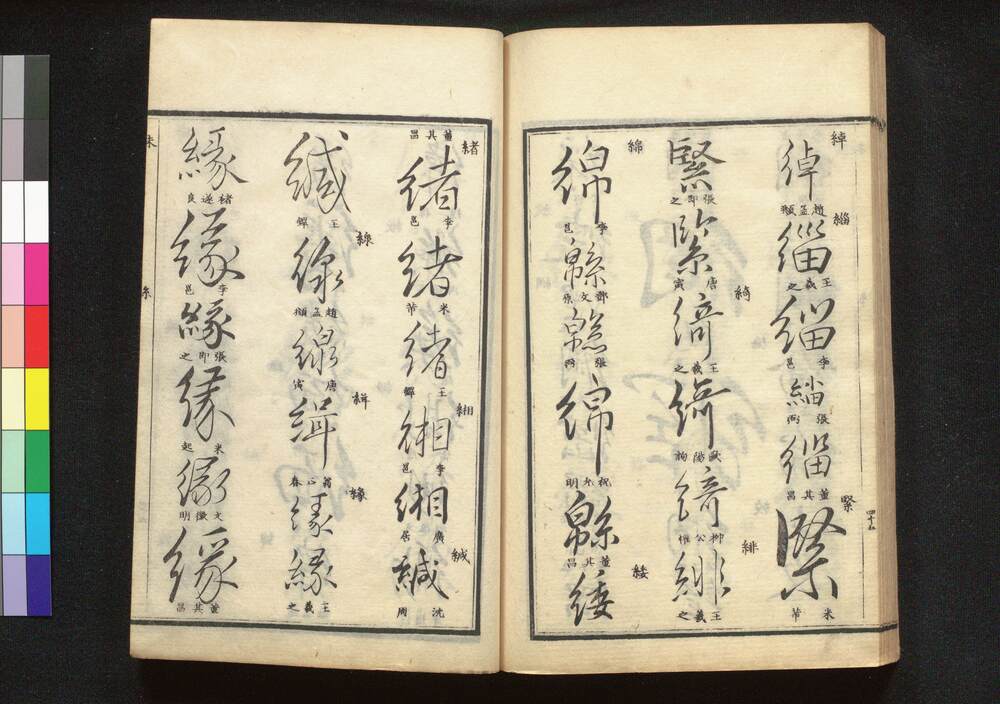 綽
綽
趙孟頫
緇
緇
王羲之
緇
李邕
緇
張弼
緇
董其昌
緊
緊
米芾
緊
張即之
緊
唐寅
綺
綺
王羲之
綺
歐陽詢
綺
柳公權
緋
緋
王羲之
綿
綿
李邕
緜
鄧文原
緜
張弼
綿
祝允明
緜
董其昌
緌
緌
董其昌
緒
緒
李邕
緒
米芾
緒
王鐸
緗
緗
李邕
緗
廣居
緘
緘
沈周
緘
王鐸
線
線
趙孟頫
線
唐寅
緝
緝
緣
緣
緣
王羲之
緣
褚遂良
緣
李邕
緣
張即之
緣
緣
文徵明
緣
董其昌